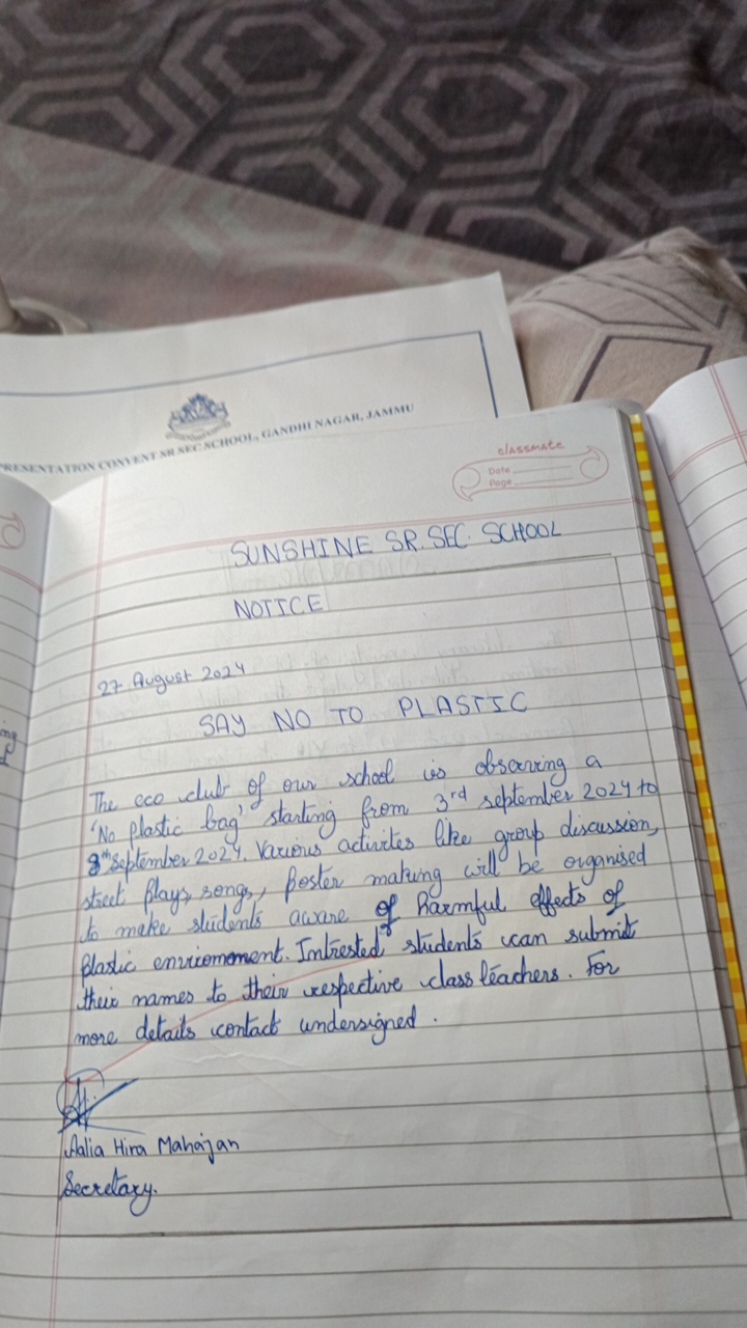 PRESENTATION CONVENT SR SEC SCHOOL, GANDHI NAGAR, JAMMU
classmate
Date
Page
SUNSHINE SR. SEC. SCHOOL
NOTICE
27 August 2024
SAY NO TO PLASTIC
The eco club of our school is observing a
'No plastic bag' starting from 3rd september 2024 to
8th September 2024. Various activites like group discussion,
street plays, songs, poster making will be organised
to make students aware of harmful effects of
plastic enviornoment. Intrested students can submit
their names to their respective class teachers. For
more details contact undersigned.
Aalia Hira Mahajan
Secretary.